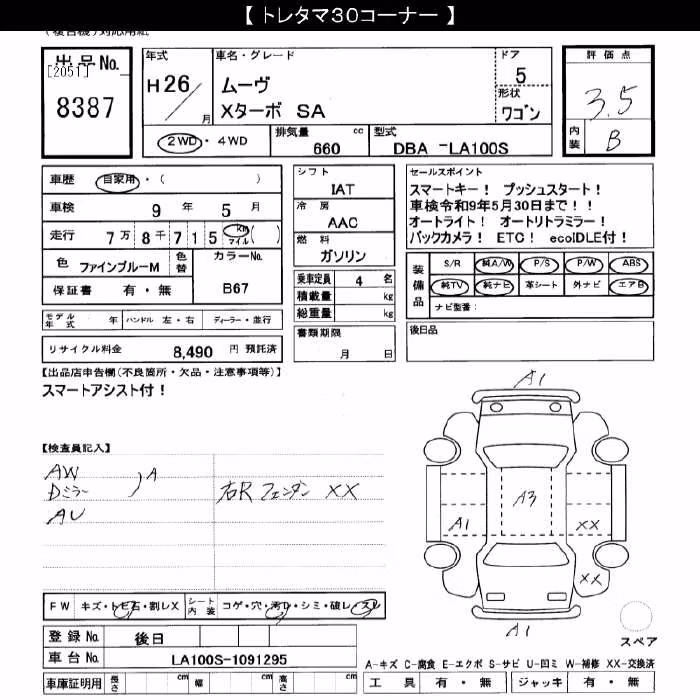 【 トレタマ30コーナー 】
(複合機)対応用紙
出品No.
[2051]
8387
年式
H26/ 月
車名・グレード
ムーヴ
Xターボ SA
ドア
5
形状
ワゴン
評価点
3.5
内装 B
2WD・4WD
排気量 cc
660
型式
DBA -LA100S
車歴 自家用・( )
車検 9年 5月
走行 7万8千715 km マイル( )
色 ファインブルーM
色替
カラーNo.
B67
保証書 有・無
モデル年式 年 ハンドル 左・右 ディーラー・並行
リサイクル料金 8,490 円 預託済
シフト
IAT
冷房
AAC
燃料
ガソリン
乗車定員 4 名
積載量 kg
総重量 kg
書類期限
月 日
セールスポイント
スマートキー! プッシュスタート!
車検令和9年5月30日まで!!
オートライト! オートリトラミラー!
バックカメラ! ETC! ecoIDLE付!
装備品
S/R 純A/W P/S P/W ABS
純TV 純ナビ 革シート 外ナビ エアB
ナビ型番:
後日品
【出品店申告欄(不良箇所・欠品・注意事項等)】
スマートアシスト付!
【検査員記入】
AW
Dミラー ) A
AU
右R フェンダー XX
FW キズ・トビ石・割レX
シート内装 コゲ・穴・汚レ・シミ・破レ・スレ
登録No. 後日
車台No. LA100S-1091295
車庫証明用 長さ cm 幅 cm 高さ cm
A1
A3
A1
XX
XX
A1
スペア
A-キズ C-腐食 E-エクボ S-サビ U-凹ミ W-補修 XX-交換済
工具 有・無 ジャッキ 有・無